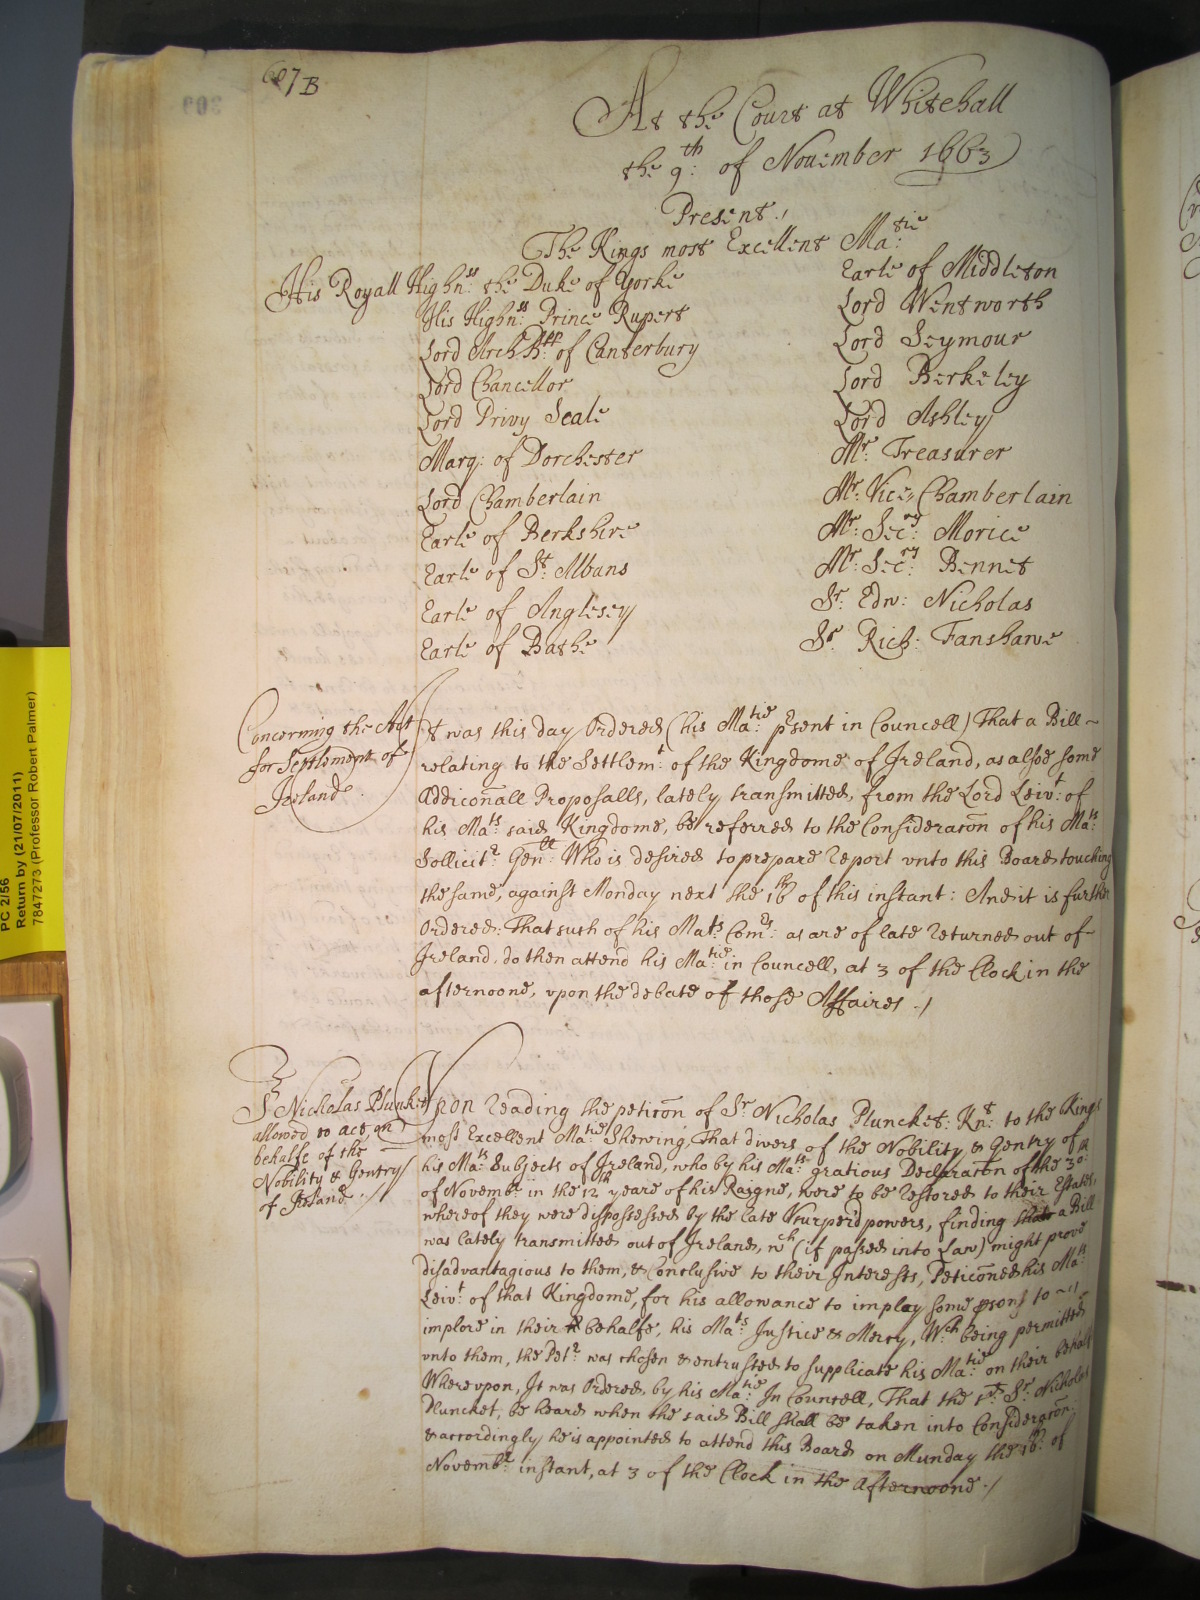 607 B
309
At the Court at Whitehall
the 9:th of Nouember 1663
Present ./
The Kings most Excellent Ma:tie
His Royall Highn:ss the Duke of Yorke
His Highn:ss Prince Rupert
Lord ArchB:pp of Canterbury
Lord Chancellor
Lord Privy Seale
Marq: of Dorchester
Lord Chamberlain
Earle of Berkshire
Earle of St. Albans
Earle of Anglesey
Earle of Bathe
Earle of Middleton
Lord Wentworth
Lord Seymour
Lord Berkeley
Lord Ashley
Mr. Treasurer
Mr. Vice,, Chamberlain
Mr: Sec:ry Morice
Mr: Sec:ry Bennet
Sr. Edw: Nicholas
Sr. Rich: Fanshawe
Concerning the Act
for Settlement of
Ireland .
It was this day Ordered (his Ma:tie psent in Councell) That a Bill ~
relating to the Settlem:t of the Kingdome of Ireland, as alsoe some
Addiconall Proposalls, lately transmitted, from the Lord Leiv:t of
his Ma:ts said Kingdome, be referred to the Consideracon of his Ma:ts
Sollicit:r Gen:ll Who is desired to prepare report vnto this Board touching
the same, against Monday next the 16th of this instant: And it is further
Ordered: That such of his Mats: Com:rs as are of late returned out of
Ireland, do then attend his Ma:tie in Councell, at 3 of the Clock in the
afternoone, vpon the debate of those Affaires ./
Sr Nicholas Plunket
allowed to act on
behalfe of the
Nobility & Gentry
of Ireland ./
Vpon reading the peticon of Sr. Nicholas Pluncket: Kn:t to the Kings
most Excellent Ma:tie Shewing, That divers of the Nobility & Gentry of
his Ma:ts Subjects of Ireland, who by his Ma:ts gratious Declaracon of the 30:th
of Novemb:r in the 12th yeare of his Raigne, were to be restored to their Estates,
whereof they were dispossessed by the late Vsurped powers, finding that a Bill
was lately transmitted out of Ireland, wch (if passed into Law) might prove
disadvantagious to them, & Conclusive to their Interests, Peticoned his Ma:ts
Leiv:t of that Kingdome, for his allowance to imploy some psons to ~
implore in their behalfe, his Ma:ts Justice & Mercy, Wch being permitted
vnto them, the Pet:r was chosen & entrusted to supplicate his Ma:tie on their behalf
Wherevpon, It was Ordered, by his Ma:tie In Councell, That the sd Sr. Nicholas
Pluncket, be heard when the said Bill shall be taken into Consideracon:
& accordingly he is appointed to attend this Board on Munday the 16:th of
Novemb:r instant, at 3 of the Clock in the Afternoone ./
PC 2/56
Return by (21/07/2011)
7847273 (Professor Robert Palmer)